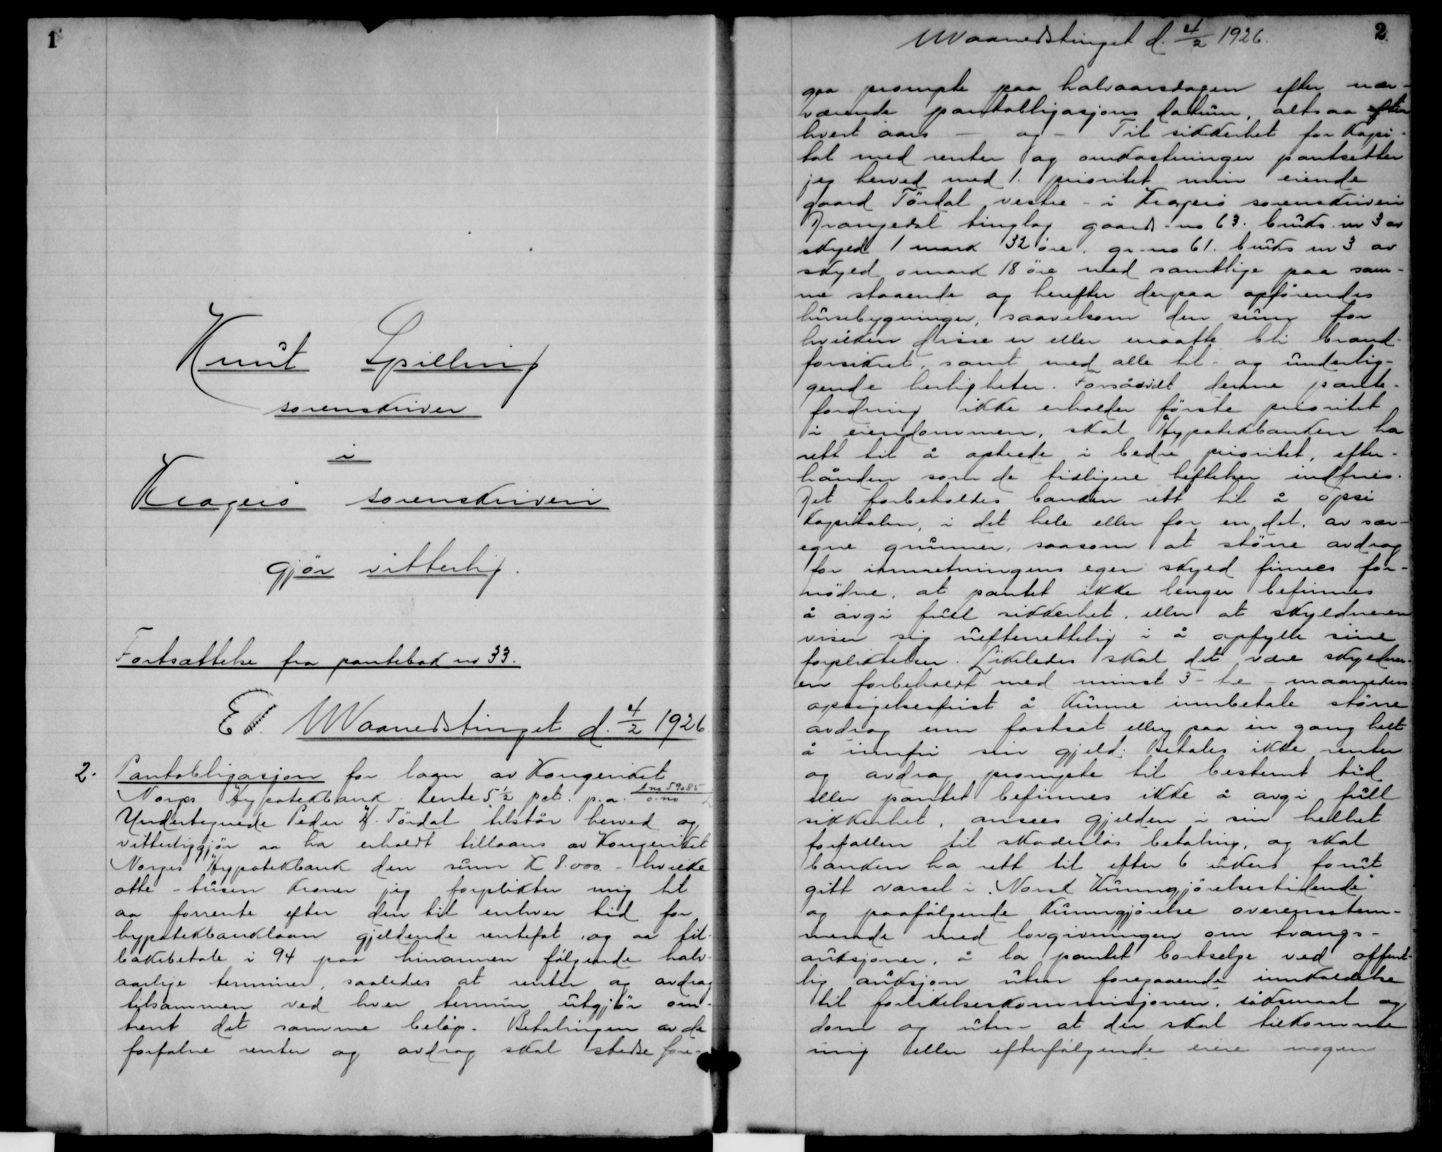 1
Knut Spilling
sorenskriver
i
Kragerø sorenskriveri
gjør vitterlig.
Fortsættelse fra pantebok no 33.
Maanedstinget d. 4/2 1926
2. Pantobligasjon for laan av Kongeriket
Norges Hypotekbank rente 5 1/2 pct. p.a.
Undertegnede Peder H. Tördal tilstår herved og
vitterliggjör aa ha erholdt tillaans av Kongeriket
Norges Hypotekbank den sum K 8000 - hvilke
otte - tusen kroner jeg forplikter mig til
aa forrente efter den til enhver tid for
hypotekbanklaan gjeldende rentefot, og aa til-
bakebetale i 94 paa hinannen fölgende halv-
aarlige terminer, saaledes at renter og avdrag
tilsammen ved hver termin utgjör om-
trent det samme belöp. Betalingen av de
forfalne renter og avdrag skal stedse fore-
Maanedstinget d. 4/2 1926.
2
gaa prompte paa halvaarsdagen efter nær-
værende pantobligasjons datum, altsaa
hvert aars — og — Til sikkerhet for kapi-
tal med renter og omkostninger pantsetter
jeg herved med 1. prioritet min eiende
gaard Tördal vestre - i Kragerö sorenskriveri
Drangedal tinglag gaards-no 63. bruks-nr 3 av
skyld 1 mark 32 öre, gr-no 61. bruks nr 3 av
skyld 0 mark 18 öre med samtlige paa sam-
me staaende og herefter derpaa opförendes
husebygninger, saavelsom den sum for
hvilken disse er eller maatte bli brand-
forsikret, samt med alle til- og underlig-
gende herligheter. Forsåvidt denne pante-
fordring ikke erholder förste prioritet
i eiendommen, skal Hypotekbanken ha
rett til å optrede i bedre prioritet, efter-
hånden som de tidligere heftelser indfries.
Det forbeholdes banken rett til å opsi
kapitalen, i det hele eller for en del, av sær-
egne grunner, saasom at större avdrag
for innretningens egen skyld finnes for-
nödne, at pantet ikke lenger befinnes
å avgi full sikkerhet, eller at skyldneren
viser sig uefterrettelig i å opfylle sine
forpliktelser. Likeledes skal det være skyldner-
en forbeholdt med minst 3 - tre - maaneders
opsigelsesfrist å kunne innbetale större
avdrag enn fastsat eller paa en gang helt
å innfri sin gjeld. Betales ikke renter
og avdrag prompte til bestemt tid
eller pantet befinnes ikke å avgi full
sikkerhet, ansees gjelden i sin helhet
forfallen til skadeslös betaling, og skal
banken ha rett til efter 6 ukers forut
gitt varsel i "Norsk Kunngjörelsestidende"
og paafölgende kunngjörelse overensstem-
mende med lovgivningen om tvangs-
auksjoner, å la pantet bortselge ved offent-
lig auksjon uten foregaaende innkaldelse
til forlikelseskommisjonen, söksmaal og
dom og uten at der skal tilkomme
mig eller efterfölgende eiere nogen